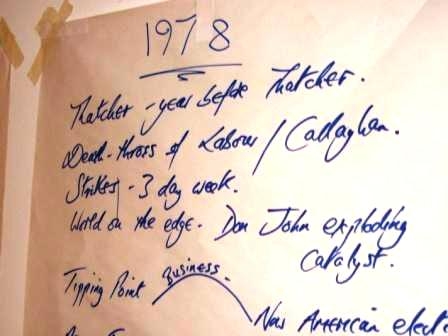 1978
Thatcher - year before Thatcher.
Death-throes of Labour / Callaghan.
Strikes - 3 day week.
World on the edge. Don John exploding
catalyst.
Tipping Point Business.
New American elect